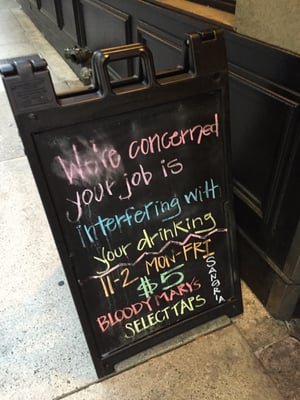 We're concerned
your job is
interfering with
your drinking
11-2 MON-FRI
$5
BLOODY MARYS
SELECT TAPS
SANGRIA